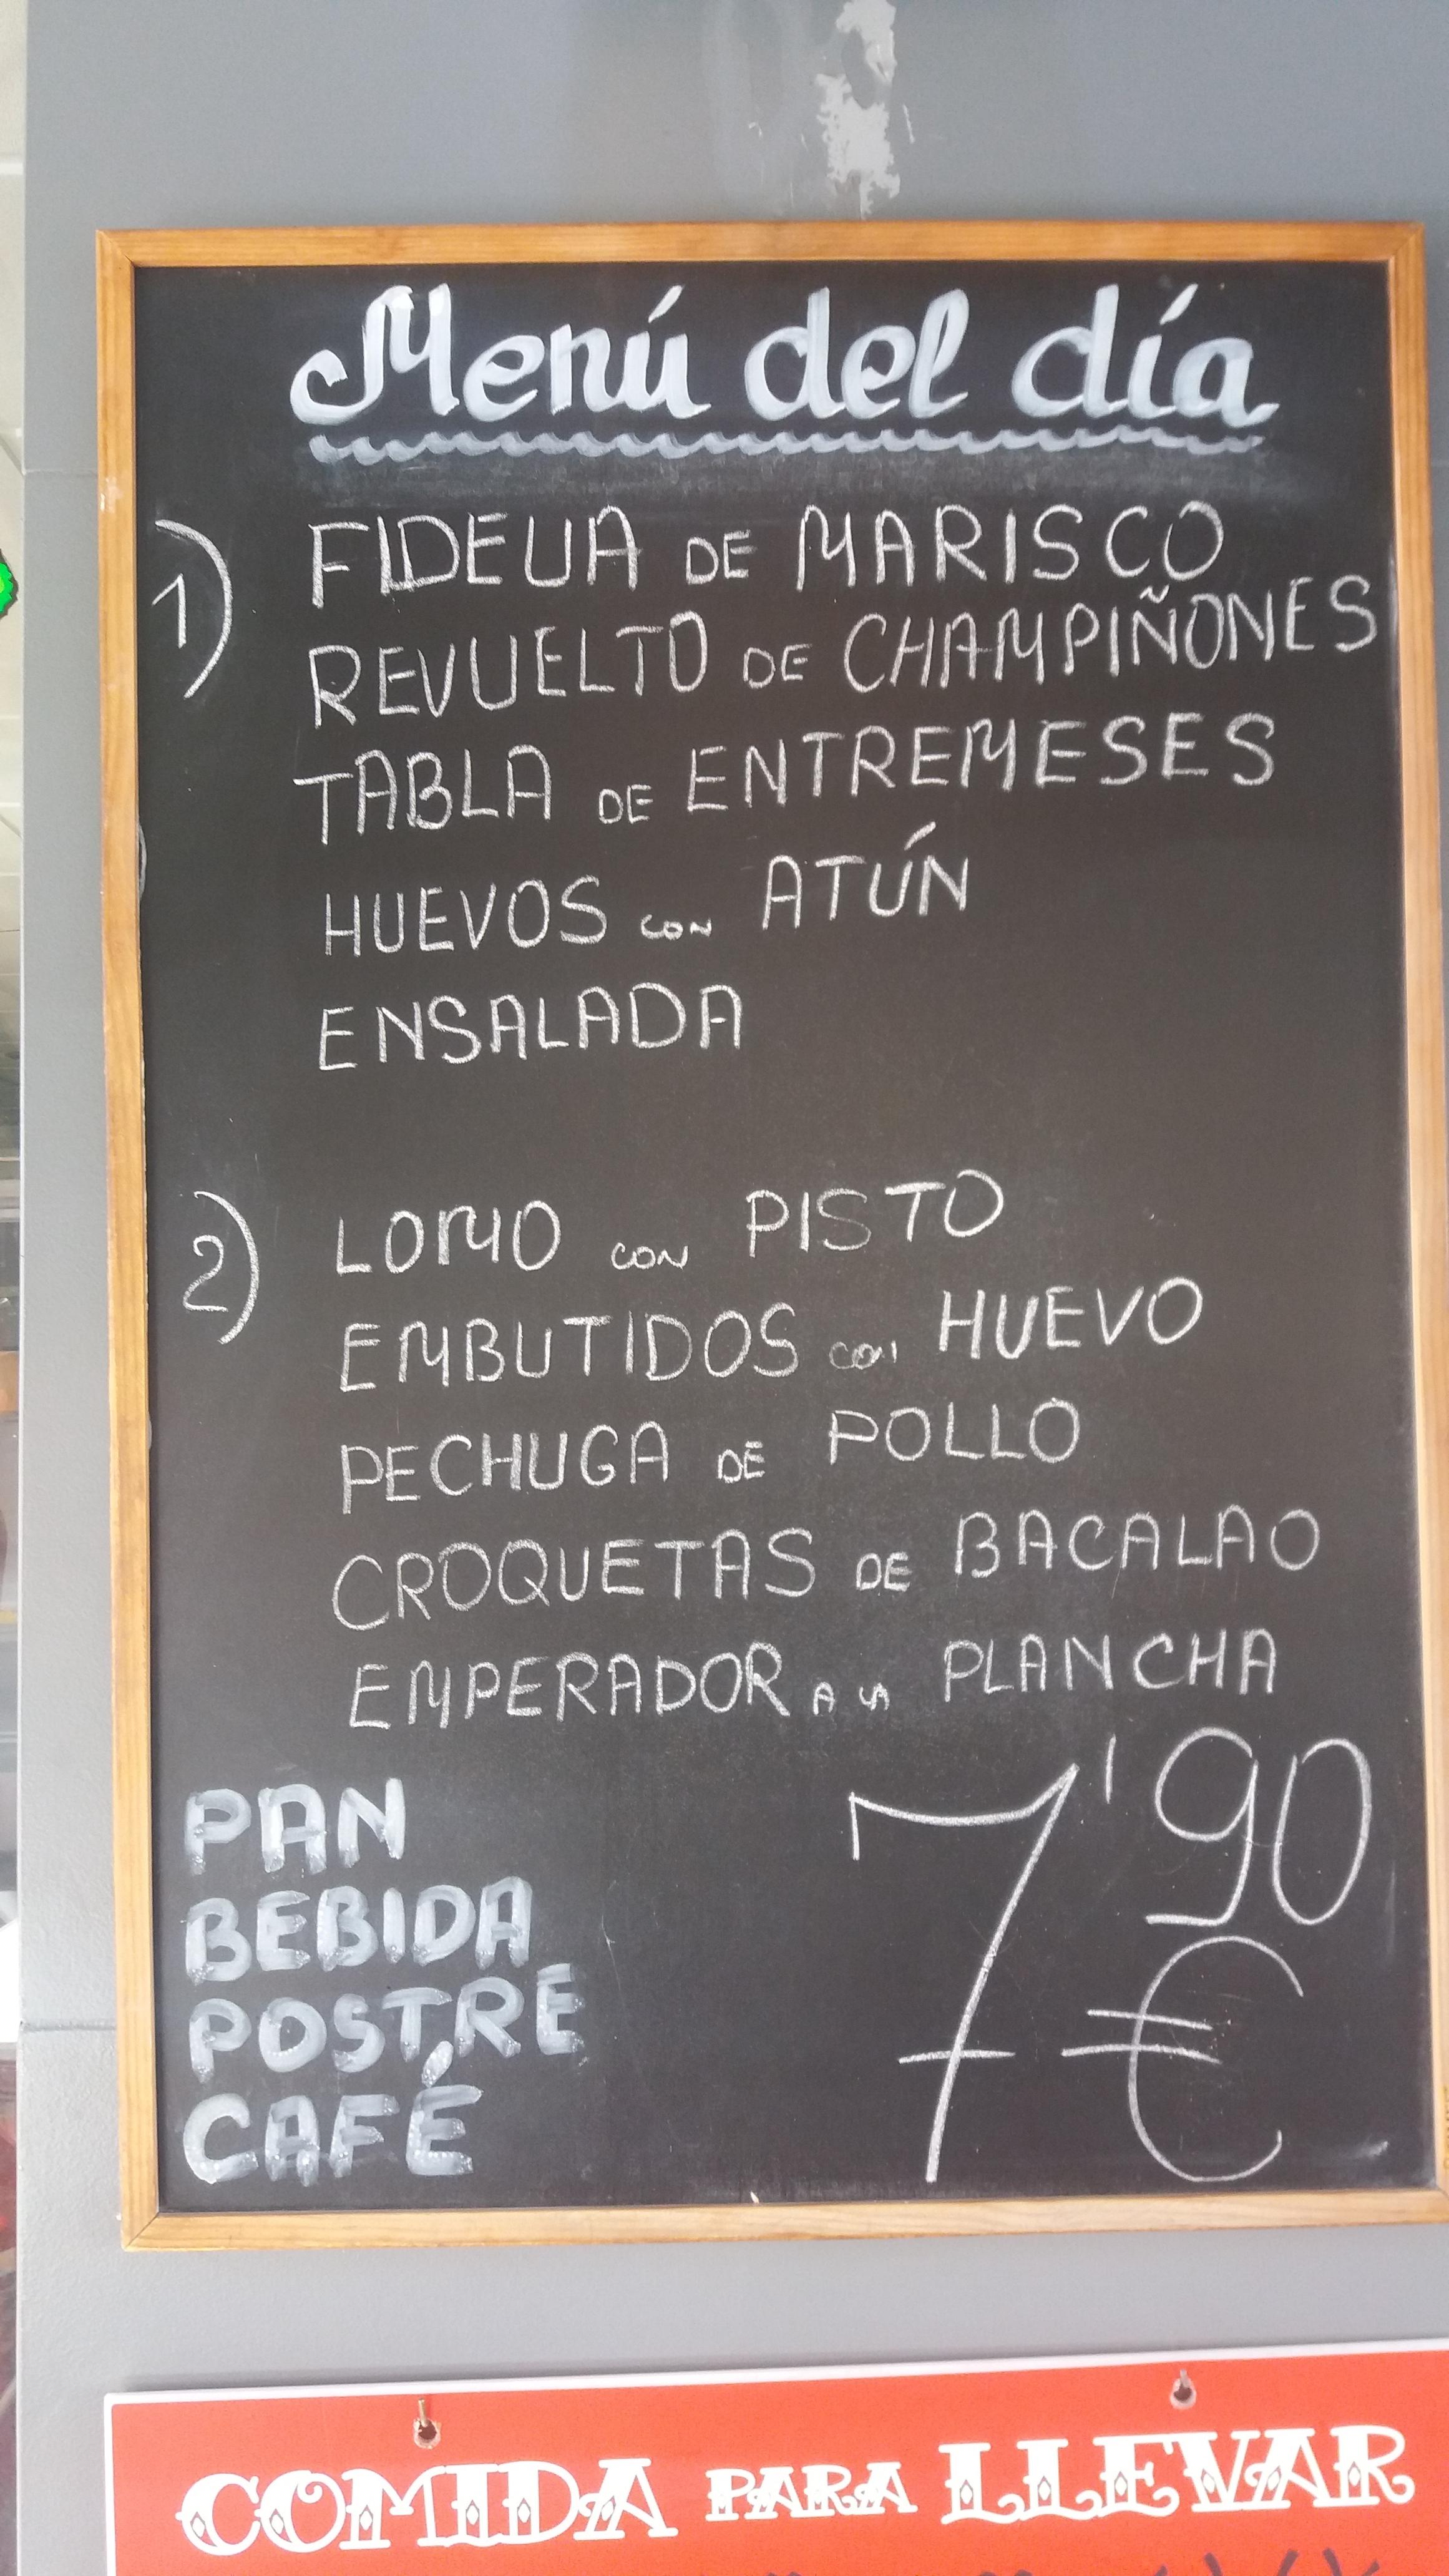 Menú del día
1) FIDEUA DE MARISCO
REVUELTO DE CHAMPIÑONES
TABLA DE ENTREMESES
HUEVOS CON ATÚN
ENSALADA
2) LOMO CON PISTO
EMBUTIDOS CON HUEVO
PECHUGA DE POLLO
CROQUETAS DE BACALAO
EMPERADOR A LA PLANCHA
PAN
BEBIDA
POSTRE
CAFÉ
7'90
€
COMIDA PARA LLEVAR